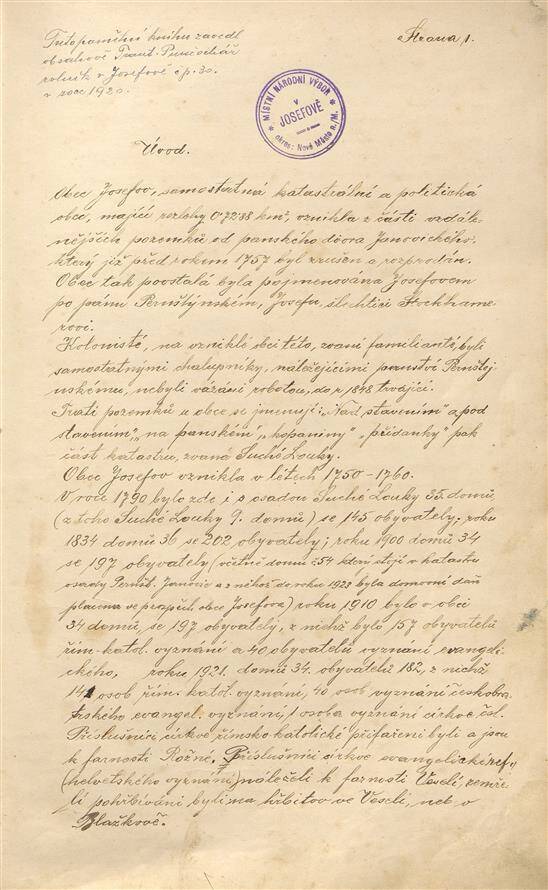 Tuto pamětní knihu zavedl
obsahově Frant. Punčochář
rolník v Josefově čp. 30.
v roce 1920.
Strana 1.
MÍSTNÍ NÁRODNÍ VÝBOR
v
JOSEFOVĚ
okres: Nové Město n./M.
Úvod.
Obec Josefov, samostatná katastrální a politická
obec, mající rozlohy 0·7288 km², vznikla z části vzdál-
nějších pozemků od panského dvora Janovického,
který již před rokem 1757 byl zrušen a rozprodán.
Obec tak povstalá byla pojmenována Josefovem
po pánu Pernštýnském, Josefu, šlechtici Stockhame-
rovi.
Kolonisté, na vzniklé obci této, zvaní familianté, byli
samostatnými chalupníky, náležejícími panství Pernštej-
nskému, nebyli vázáni robotou, do r. 1848 trvající.
Trati pozemků u obce se jmenují: "Nad stavením" a pod
stavením", "na panském", "kopaniny" "přídanky" pak
část katastru, zvaná Suché Louky.
Obec Josefov vznikla v létech 1750-1760.
V roce 1790 bylo zde i s osadou Suché Louky 35. domů
(z toho Suché Louky 9. domů) se 145 obyvately; roku
1834 domů 36 se 202 obyvately; roku 1900 domů 34
se 197 obyvately (včetně domu č 54 který stojí v katastru
osady Pernšt. Janovic a z něhož do roku 1923 byla domovní daň
placena ve prospěch obce Josefova) roku 1910 bylo v obci
34 domů, se 197 obyvately, z nichž bylo 157 obyvatelů
řím. katol. vyznání a 40 obyvatelů vyznání evangeli-
ckého, roku 1921. domů 34. obyvatelů 182, z nichž
141 osob řím. katol. vyznání, 40 osob vyznání českobra-
trského evangel. vyznání, 1 osoba vyznání církve čsl.
Příslušníci církve římsko katolické přifařeni byli a jsou
k farnosti Rožné, Příslušníci církve evangelické ref.,
(helvetského vyznání) náleželi k farnosti Veselí, zemře-
lí pohřbíváni byli na hřbitov ve Veselí, neb v
Blažkově.